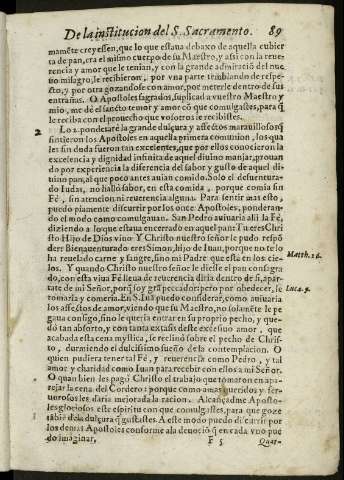 De la institucion del S. Sacramento. 89
mamẽte creyessen, que lo que estaua debaxo de aquella cubier
ta de pan, era el mismo cuerpo de su Maestro, y assi con la reue-
rencia y amor que le tenian, y con la grande admiraciõ del nue
uo milagro, le recibieron, por vna parte tẽblando de respe-
to, y por otra gozandose con amor, por meterle dentro de sus
entrañas. O Apostoles sagrados, suplicad a vuestro Maestro y
mio, me dè el sancto temor y amor cõ que comulgastes, para q̃
le reciba con el prouecho que vosotros le recibistes.
2 Lo 2. ponderarè la grande dulçura y affectos marauillosos q̃
sintieron los Apostoles en aquella primera comunion, los qua
les sin duda fueron tan excelentes, que por ellos conocieron la
excelencia y dignidad infinita de aquel diuino manjar, prouan
do por experiencia la diferencia del sabor y gusto de aquel di-
uino pan, al que poco antes auian comido. Solo el desuentura-
do Iudas, no hallò sabor, en esta comida, porque comia sin
Fè, sin atencion ni reuerencia alguna. Para sentir mas esto,
puedo piamente discurrir por los once Apostoles, ponderan-
do el modo como comulgauan. San Pedro auiuaria alli la Fè,
diziendo a lo que estaua encerrado en aquel pan: Tu eres Chri
sto Hijo de Dios viuo Y Christo nuestro señor le pudo respõ
der: Bienauenturado eres Simon, hijo de Iuan, porque no te lo
ha reuelado carne y sangre, sino mi Padre que està en los cie- Matth. 16.
los. Y quando Christo nuestro señor le diesse el pan consagra
do, con esta viua Fè llena de reuerencia diria dentro de si, apar-
tate de mi Señor, porq̃ soy grã peccador: pero por obedecer, se Luca. 5.
tomaria y comeria. En S. Iuã puedo considerar, como auiuaria
los affectos de amor, viendo que su Maestro, no solamẽte le pe
gaua consigo, sino le queria entrar en su proprio pecho, y que-
dò tan absorto, y con tanta extasis deste excessiuo amor, que
acabada esta cena mystica, se reclinò sobre el pecho de Chris-
to, durmiendo el dulcissimo sueño de la contemplacion. O
quien pudiera tener tal Fè, y reuerencia como Pedro, y tal
amor y charidad como Iuan para recebir con ellos a mi Señor.
O quan bien les pagò Christo el trabajo que tomaron en apa-
rejar la cena del Cordero: porque como a mas queridos y fer-
uorosos les daria mejorada la racion. Alcançadme Aposto-
les gloriosos este espiritu con que comulgastes, para que goze
tãbiẽ dela dulçura q̃ gustastes. A este modo puedo discurrir por
los demas Apostoles conforme ala deuociõ q̃ en cada vno pue
do imaginar,
F 5 Quar-